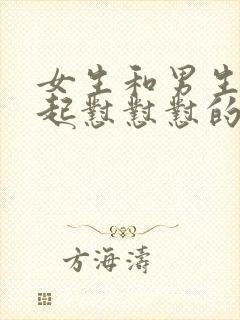 女生和男生
起怼怼怼的
方海涛